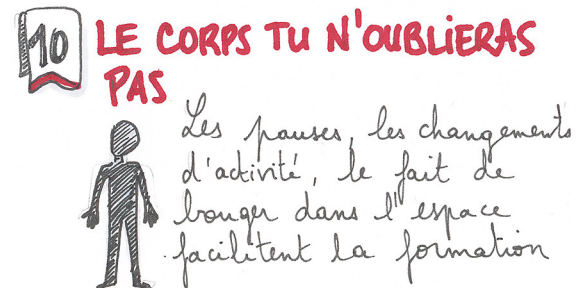 10 LE CORPS TU N'OUBLIERAS
PAS
Les pauses, les changements
d'activité, le fait de
bouger dans l'espace
facilitent la formation